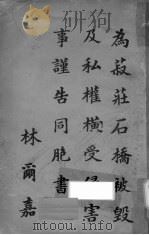 為菽莊石橋被毀
及私權橫受害
事謹告同胞書
林爾嘉